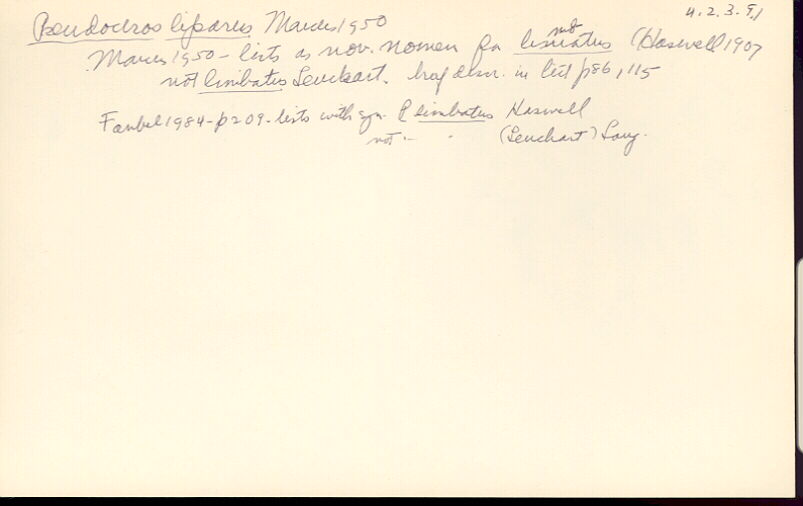 4.2.3.9.1
Pseudoceros liparus Marcus 1950
Marcus 1950 - lists as nov. nomen for limbatus (Haswell 1907
not limbatus Leuckart. brief descr. in lit p86, 115
Faubel 1984 - p209 - lists with syn. P limbatus Haswell
not - " (Leuckart) Lang.